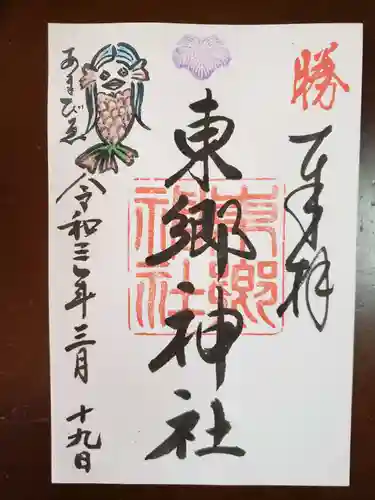 勝
奉拝
東郷神社
東郷
神社
あまびゑ
令和三年三月十九日